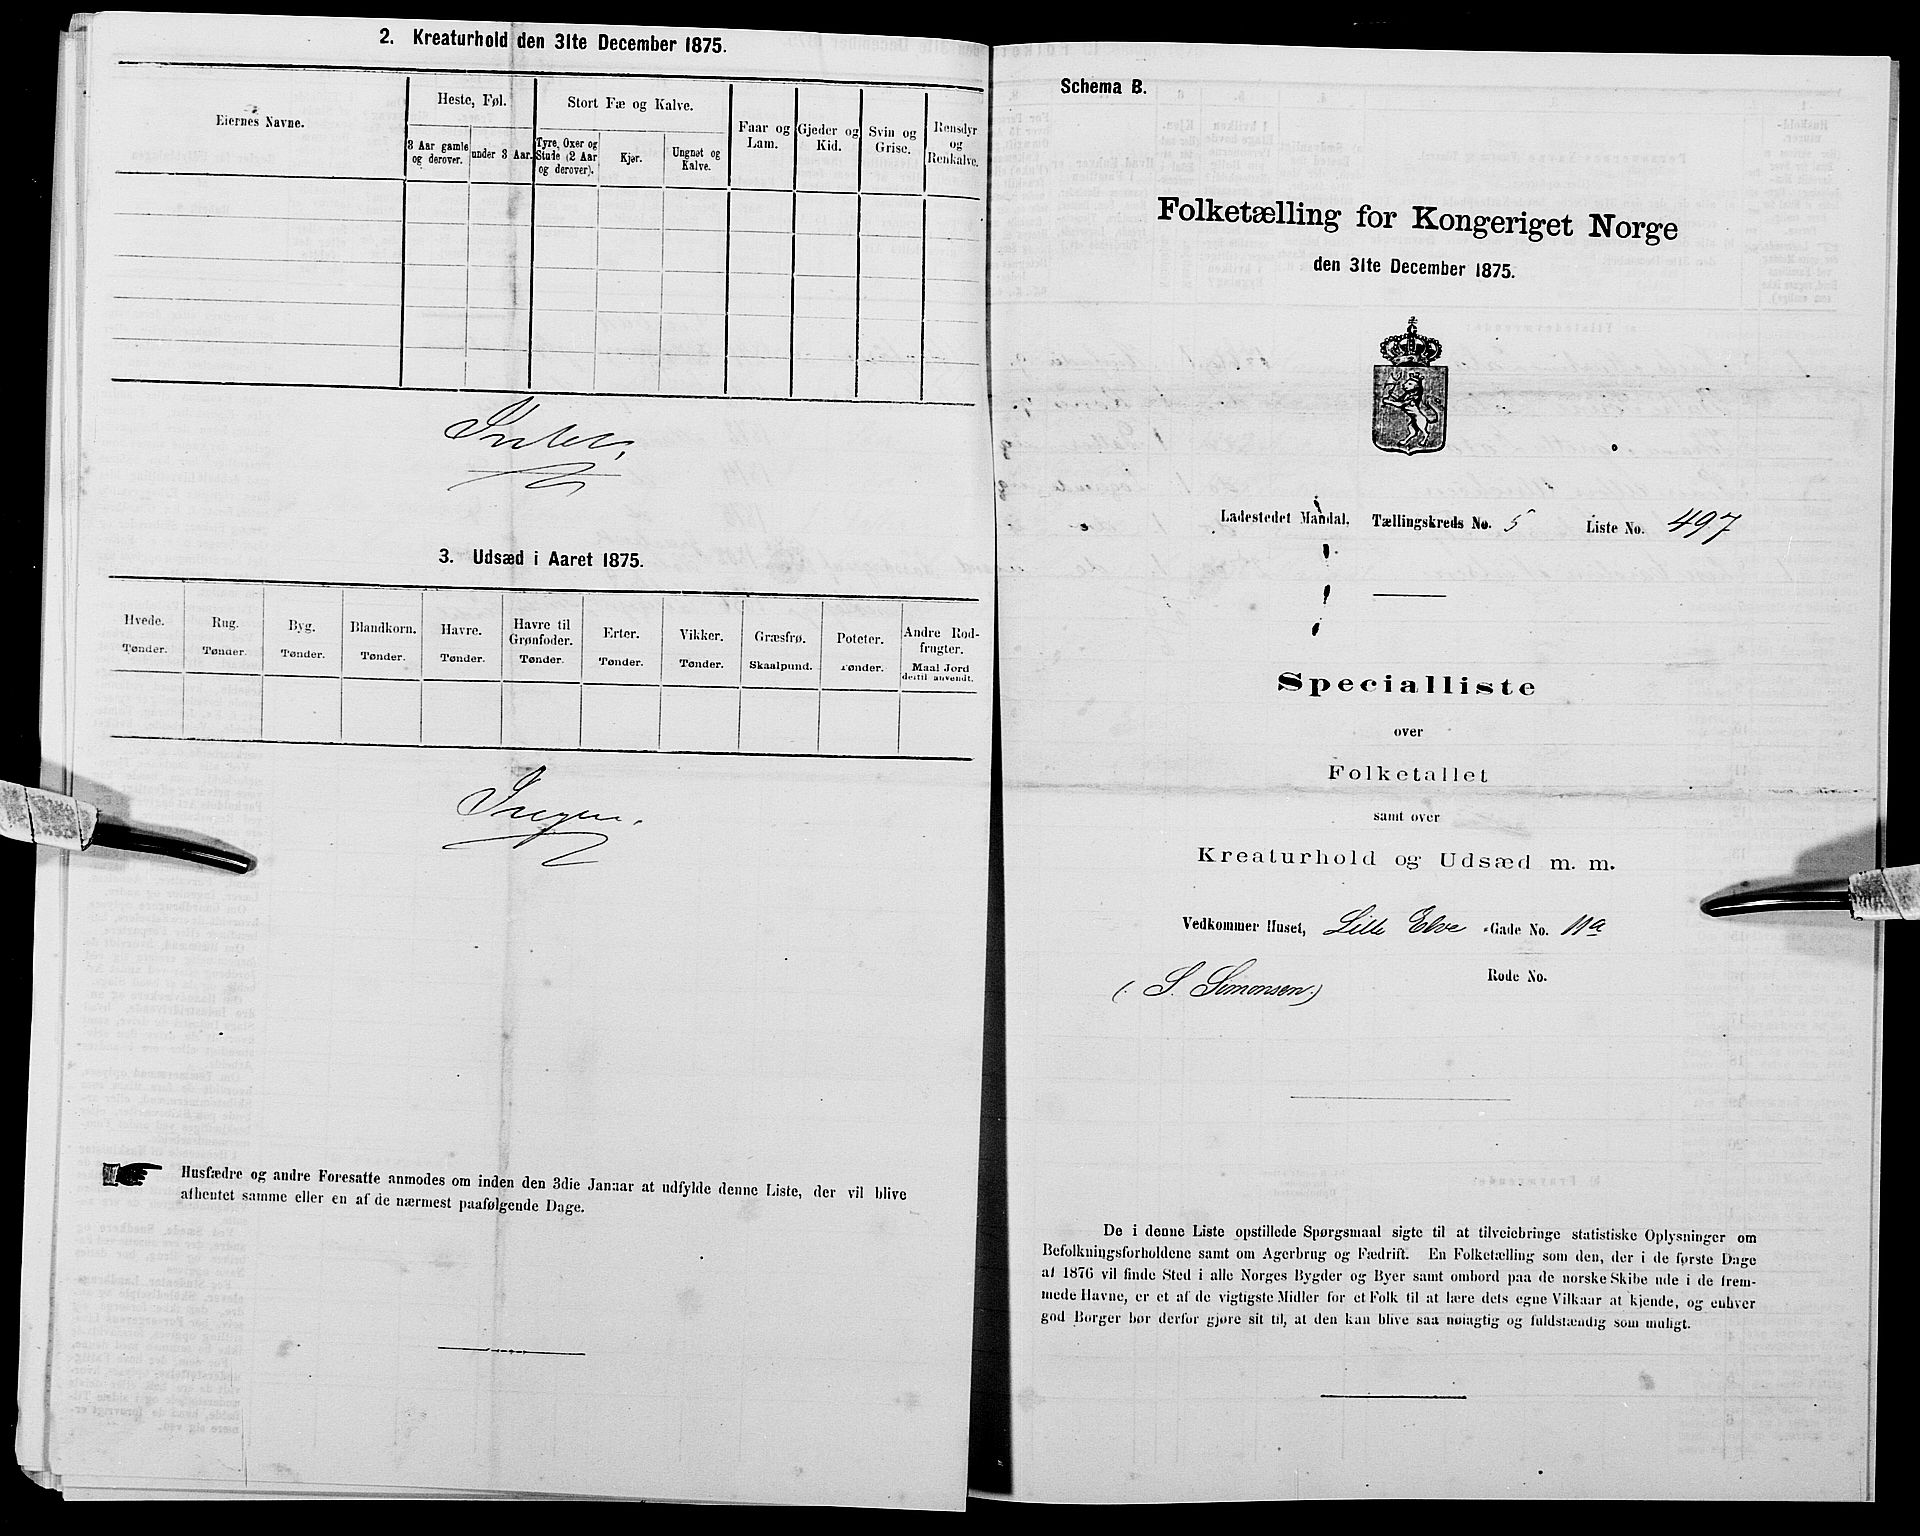 2. Kreaturhold den 31te December 1875.
Eiernes Navne.
Heste, Føl.
Stort Fæ og Kalve.
Faar og Lam.
Gjeder og Kid.
Svin og Grise.
Rensdyr og Renkalve.
3 Aar gamle og derover.
under 3 Aar.
Tyre, Oxer og Stude (2 Aar og derover).
Kjør.
Ungnøt og Kalve.
Intet.
3. Udsæd i Aaret 1875.
Hvede.
Rug.
Byg.
Blandkorn.
Havre.
Havre til Grønfoder.
Erter.
Vikker.
Græsfrø.
Poteter.
Andre Rodfrugter.
Tønder.
Tønder.
Tønder.
Tønder.
Tønder.
Tønder.
Tønder.
Tønder.
Skaalpund.
Tønder.
Maal Jord dertil anvendt.
Ingen.
Husfædre og andre Foresatte anmodes om inden den 3die Januar at udfylde denne Liste, der vil blive
afhentet samme eller en af de nærmest paafølgende Dage.
Schema B.
Folketælling for Kongeriget Norge
den 31te December 1875.
Ladestedet Mandal. Tællingskreds No. 5 Liste No. 497
Specialliste
over
Folketallet
samt over
Kreaturhold og Udsæd m. m.
Vedkommer Huset, Lille Elve -Gade No. 11a
(: S. Simonsen :)
Rode No.
De i denne Liste opstillede Spørgsmaal sigte til at tilveiebringe statistiske Oplysninger om
Befolkningsforholdene samt om Agerbrug og Fædrift. En Folketælling som den, der i de første Dage
af 1876 vil finde Sted i alle Norges Bygder og Byer samt ombord paa de norske Skibe ude i de frem-
mede Havne, er et af de vigtigste Midler for et Folk til at lære dets egne Vilkaar at kjende, og enhver
god Borger bør derfor gjøre sit til, at den kan blive saa nøiagtig og fuldstændig som muligt.